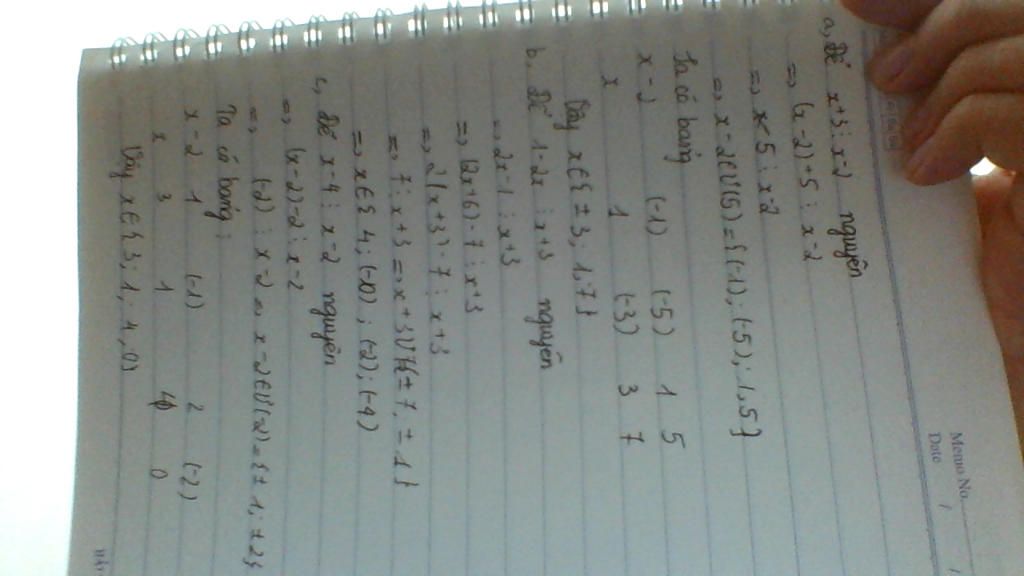 Memo No.
Date / /
a, Để x+3 ⋮ x-2 nguyên
=> (x-2)+5 ⋮ x-2
=> 5 ⋮ x-2
=> x-2 ∈ Ư(5) = {(-1); (-5); 1, 5}
Ta có bảng
x-2 (-1) (-5) 1 5
x 1 (-3) 3 7
Vậy x ∈ { ±3; 1; 7}
b, Để 1-2x ⋮ x+3 nguyên
=> 2x-1 ⋮ x+3
=> (2x+6)-7 ⋮ x+3
=> 2(x+3)-7 ⋮ x+3
=> 7 ⋮ x+3 => x+3 Ư { ±7, ±1}
=> x ∈ { 4; (-10); (-2); (-4)
c, Để x-4 ⋮ x-2 nguyên
=> (x-2)-2 ⋮ x-2
=> (-2) ⋮ x-2 => x-2 ∈ Ư(-2) = {±1; ±2}
Ta có bảng:
x-2 1 (-1) 2 (-2)
x 3 1 4 0
Vậy x ∈ { 3; 1; 4, 0}